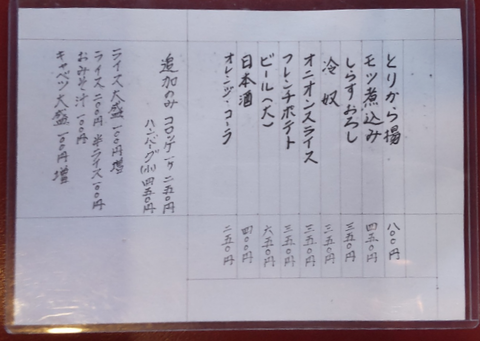 とりから揚 八〇〇円
モツ煮込み 四五〇円
しらすおろし 三五〇円
冷奴 三五〇円
オニオンスライス 三五〇円
フレンチポテト 三五〇円
ビール(大) 六五〇円
日本酒 四〇〇円
オレンヂ・コーラ 二五〇円
追加のみ コロッケ一ケ 二五〇円
ハンバーグ(小) 四五〇円
ライス大盛 一〇〇円増
ライス 二〇〇円 半ライス 一〇〇円
おみそ汁 一〇〇円
キャベツ大盛 一〇〇円増